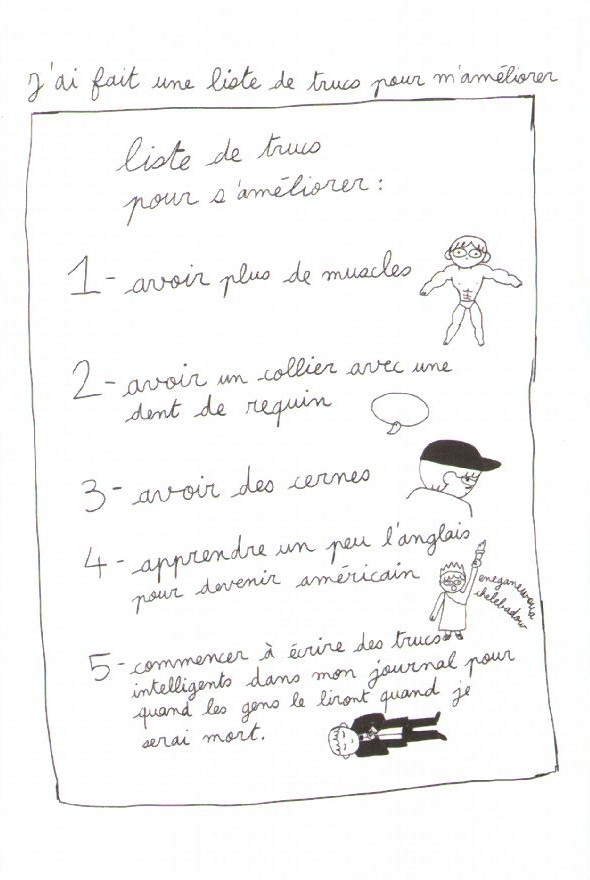 J'ai fait une liste de trucs pour m'améliorer
liste de trucs
pour s'améliorer :
1- avoir plus de muscles
2- avoir un collier avec une
dent de requin
3- avoir des cernes
4- apprendre un peu l'anglais
pour devenir américain
5- commencer à écrire des trucs
intelligents dans mon journal pour
quand les gens le liront quand je
serai mort.